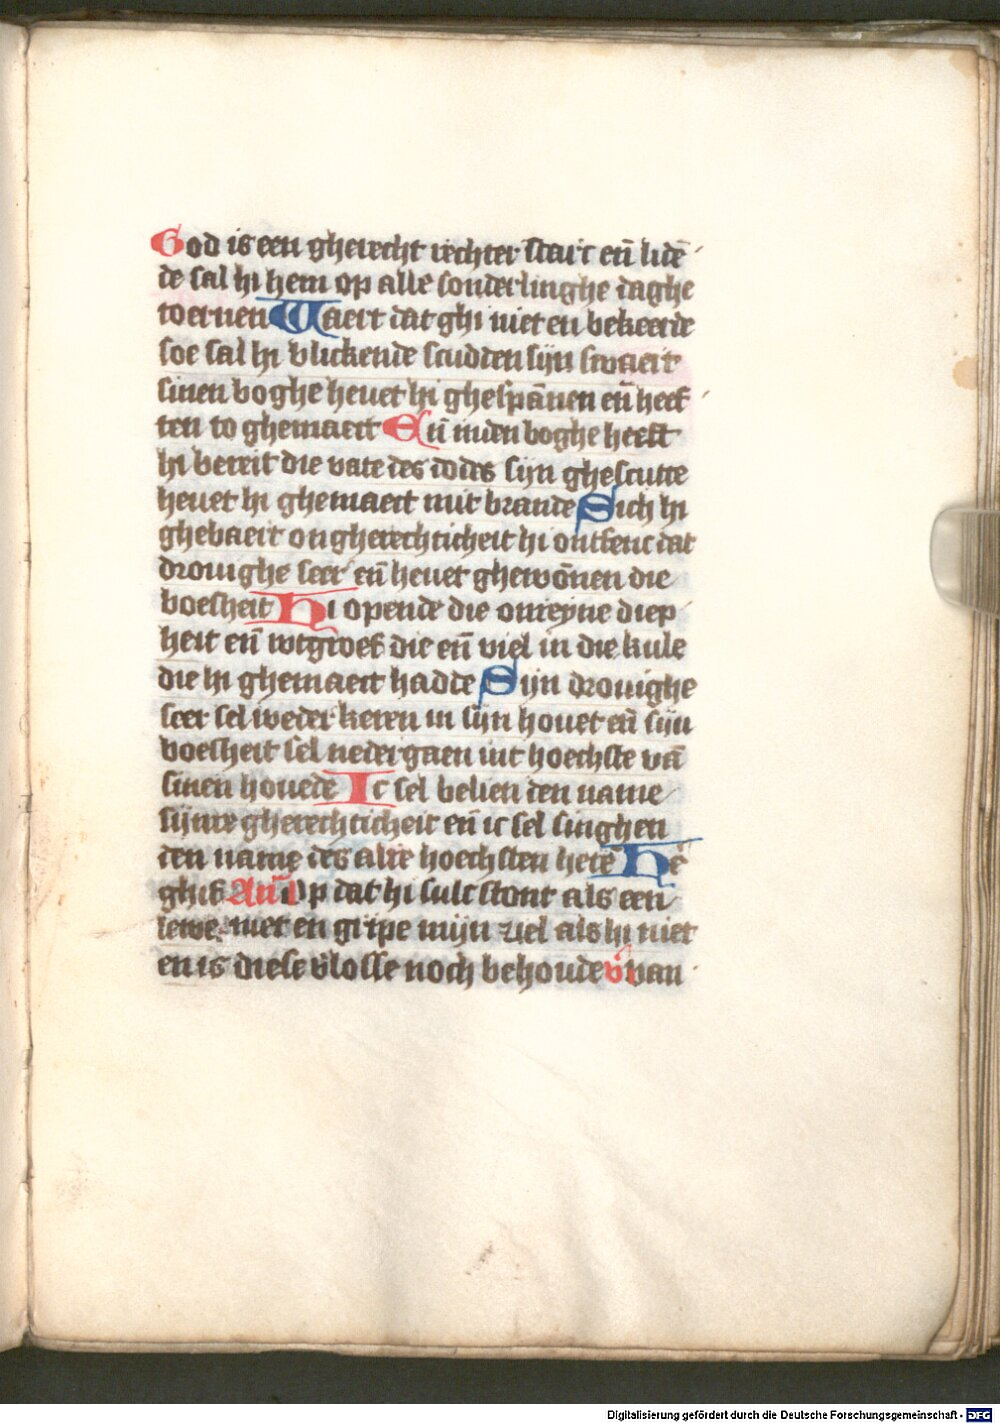 God is een gherecht rechter starc en̄ lidē
de sal hi hem op alle sonderlinghe daghe
toernen Waert dat ghi niet en bekeerde
soe sal hi blickende scudden sijn swaert
sinen boghe heuet hi ghespānen en̄ heef
ten to ghemaect En̄ inden boghe heeft
hi bereit die vate des dodes sijn ghescutte
heuet hi ghemaect mit brande Sich hi
ghebaert ongherechticheit hi ontfenc dat
drouighe seer en̄ heuet ghewōnen die
boesheit Hi opende die onreyne diep
heit en̄ wtgroef die en̄ viel in die kule
die hi ghemaect hadde Sijn drouighe
seer sel weder keren in sijn houet en̄ sijn
boesheit sel nedergaen int hoechste vā
sinen houede Ic sel belien den name
sijnre gherechticheit en̄ ic sel singhen
den name des alre hoechsten herē Hē
ghif An̄ Op dat hi sulc stont als een
lewe niet en gripe mijn ziel als hi niet
en is diese vlosse noch behoude v̄ van
Digitalisierung gefördert durch die Deutsche Forschungsgemeinschaft - DFG